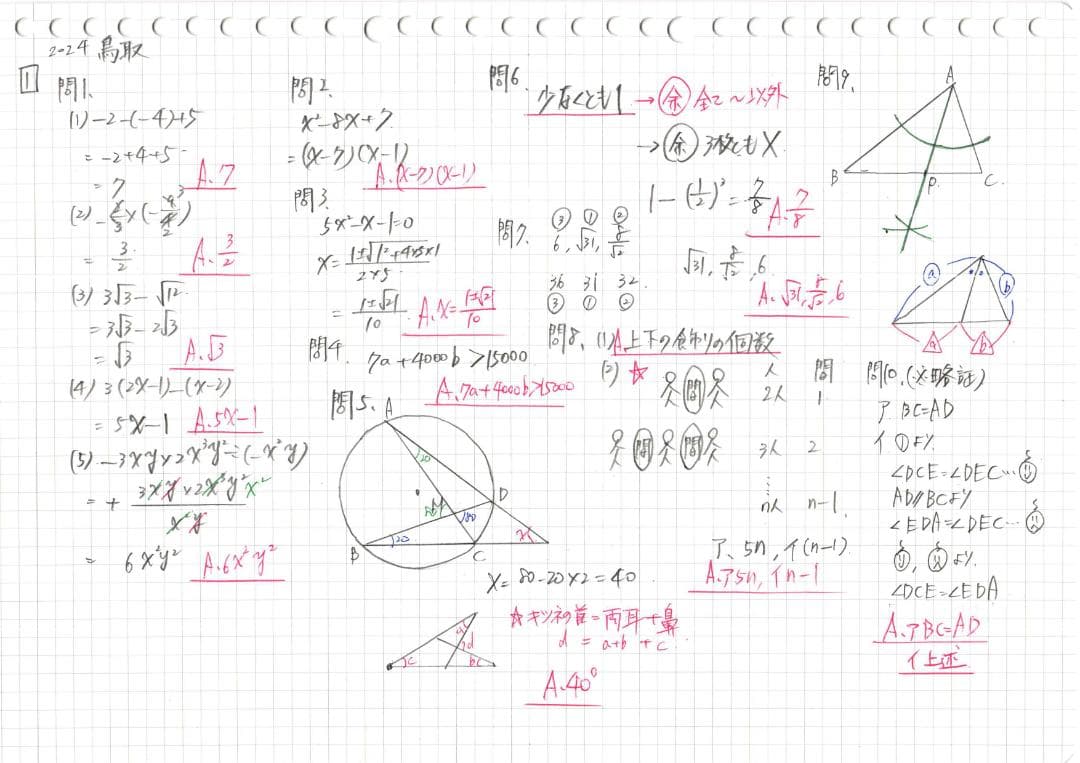 2024 鳥取
1
問1.
(1) -2-(-4)+5
= -2+4+5
= 7
A. 7
(2)
= 3/2
A. 3/2
(3) 3√3 - √12
= 3√3 - 2√3
= √3
A. √3
(4) 3(2x-1)-(x-2)
= 5x-1 A. 5x-1
(5) -3xy×2x³y²÷(-x²y)
= + 3xy×2x³y² / x²y
= 6x²y² A. 6x²y²
問2.
x²-8x+7
=(x-7)(x-1)
A. (x-7)(x-1)
問3.
5x²-x-1=0
x= 1±√1²+4×5×1 / 2×5
= 1±√21 / 10
A. x= 1±√21 / 10
問4.
7a+4000b>15000
A. 7a+4000b>15000
問5.
A
20
D
80
80
B
20
C
x
x=80-20×2=40
☆キツネの首=両耳+鼻
d = a+b +c
a
d
c
b
A. 40°
問6.
少なくとも1 → 余 全て〜以外
→ 余 3枚ともX
1-(1/2)³= 7/8
A. 7/8
問7.
③ ① ②
6, √31, 8/√2
36 31 32
③ ① ②
√31, 8/√2, 6
A. √31, 8/√2, 6
問8. (1) A上下の飾りの個数
(2) ☆
人 間
問 2人 1
問 問 3人 2
n人 n-1
ア、5n, イ(n-1)
A. ア5n, イn-1
問9.
A
B
P.
C.
a
b
a
b
問10. (※略証)
ア BC=AD
イ ①より.
∠DCE=∠DEC…
AD∥BCより
∠EDA=∠DEC…
より.
∠DCE=∠EDA
A. ア BC=AD
イ上述